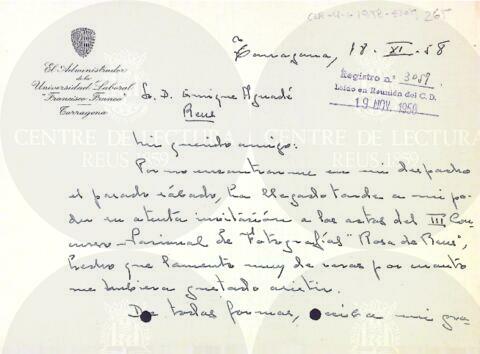 265
Tarragona, 18 - XI - 58
El Administrador
de la
Universidad Laboral
"Francisco Franco"
Tarragona
Registro n.º 3059
Leído en Reunión del C.D.
19 NOV. 1958
S. D. Enrique Aguadé
Reus
CENTRE DE LECTURA
REUS 1859
CENTRE DE LECTURA
REUS 1859
Mi querido amigo:
Por no encontrarme en mi despacho
el pasado sábado, ha llegado tarde a mi po-
der su atenta invitación a los actos del III Con-
curso Nacional de Fotografías "Rosa de Reus",
hecho que lamento muy de veras por cuanto
me hubiera gustado asistir.
De todas formas, reciba mi gra-